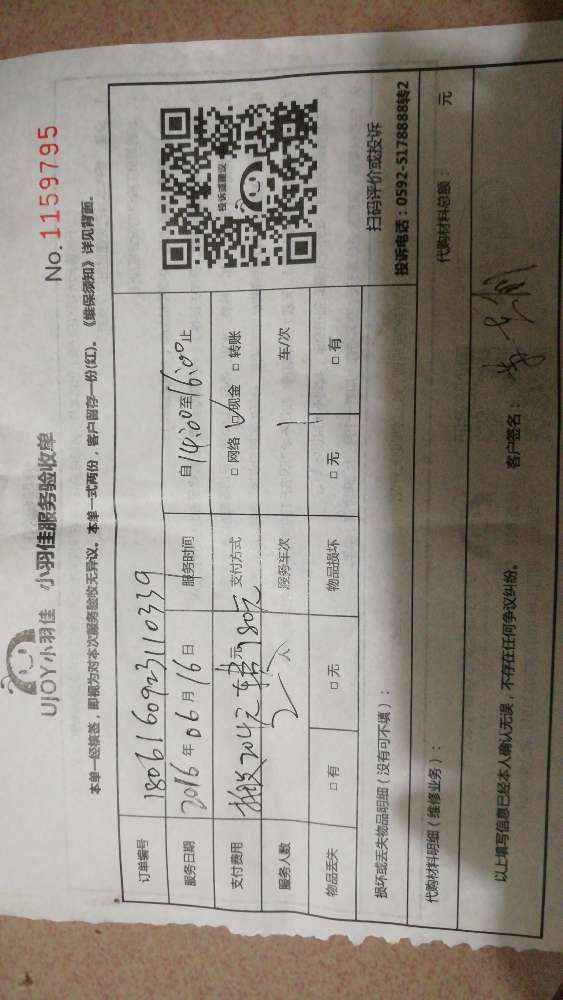 UJOY小羽佳 小羽佳服务验收单
No. 1159795
本单一经核签，即视为对本次服务验收无异议。本单一式两份，客户留存一份(红)。《维保须知》详见背面。
订单编号 180616092311 0339
服务日期 2016 年 06 月 16 日 服务时间 自 14:00 至 16:00 止
支付费用 204元 180元 元 支付方式 □ 网络 □ 现金 □ 转账
服务人数 2 人 服务车次 1 车/次
物品丢失 □ 有 □ 无 物品损坏 □ 无 □ 有
投诉或建议
扫码评价或投诉
投诉电话：0592-5178888转2
损坏或丢失物品明细（没有可不填）：
代购材料明细（维修业务）： 代购材料总额： 元
以上填写信息已经本人确认无误，不存在任何争议纠纷。 客户签名：